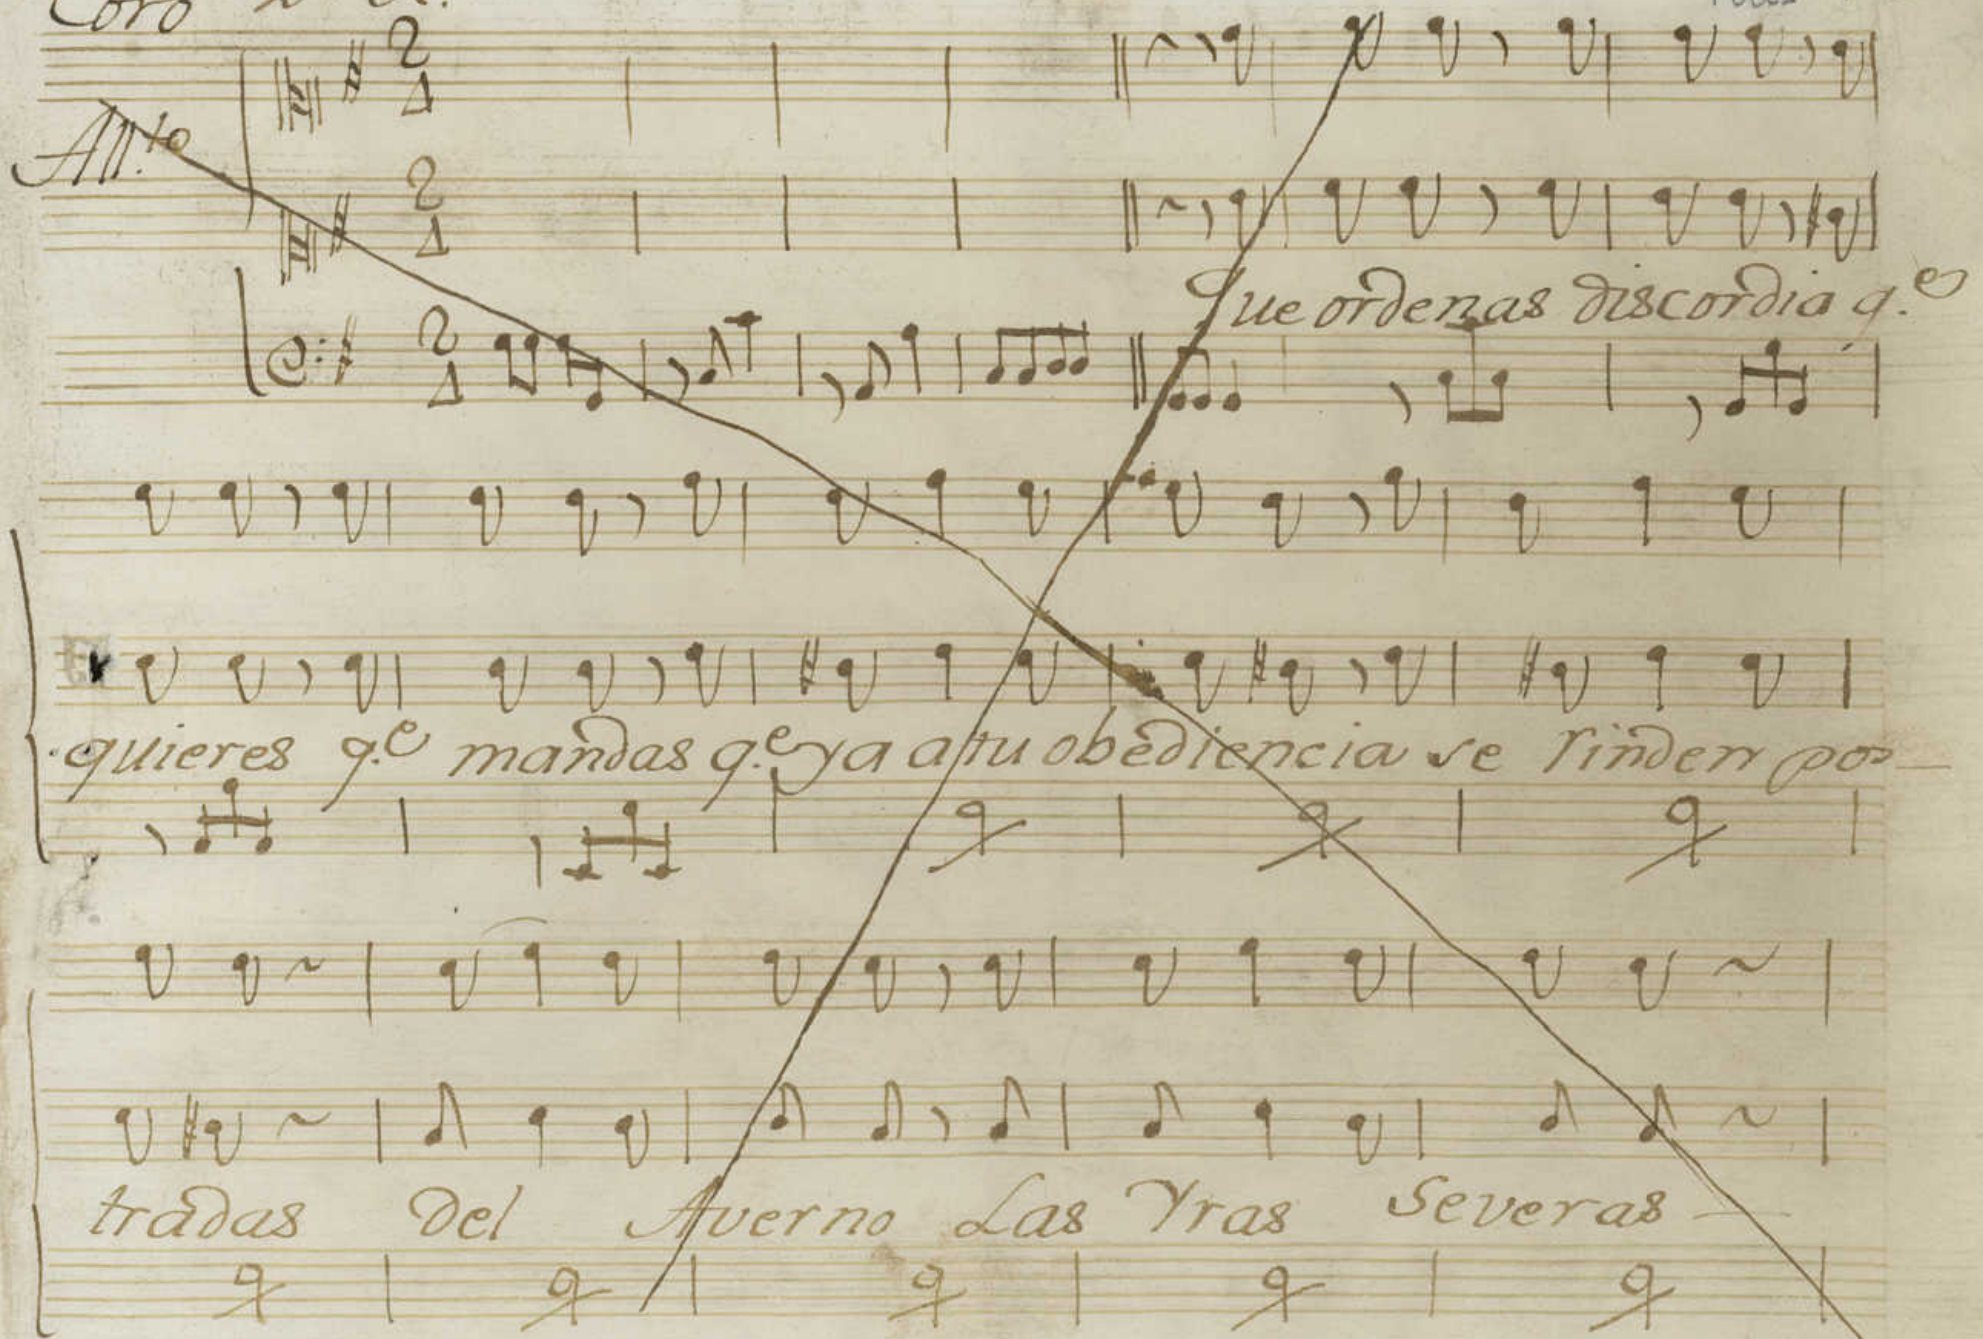 Coro
All.to
Que ordenas discordia q.e
quieres q.e mandas q.e ya a tu obediencia se rinden pos
tradas del Averno Las Yras Severas